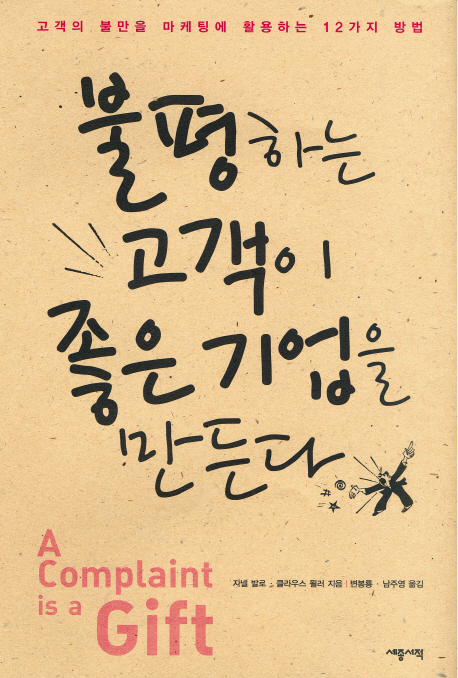 고객의 불만을 마케팅에 활용하는 12가지 방법
불평하는
고객이
좋은 기업을
만든다
@
#
A
Complaint
is a
Gift
자넬 발로 · 클라우스 묄러 지음 | 변봉룡 · 남주영 옮김
세종서적